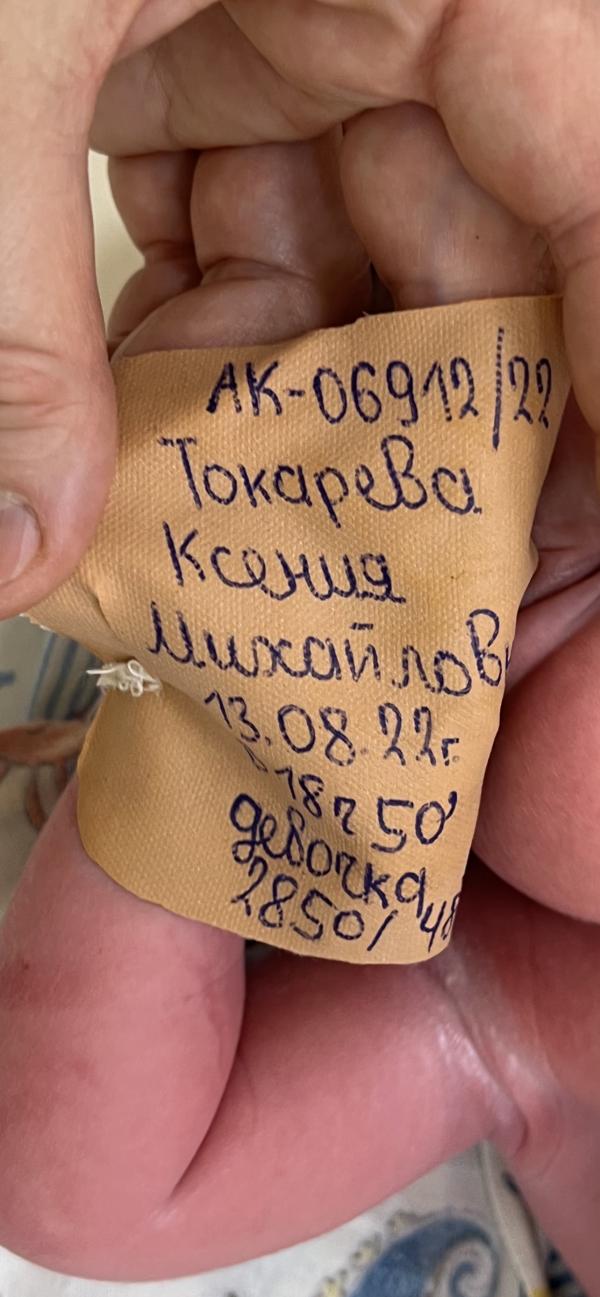 АК-06912/22
Токарева
Ксения
Михайловн
13.08.22г.
в 18ч 50'
девочка
2850/48